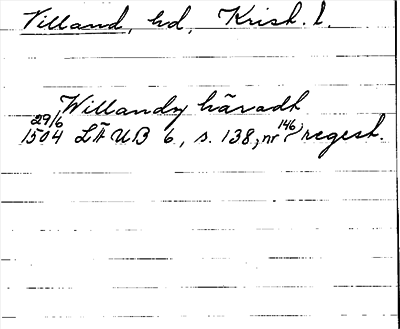 Villand, hd, Krist. l.
Willandz häradh
29/6
1504 LÄUB 6, s. 138, nr 146, regest.